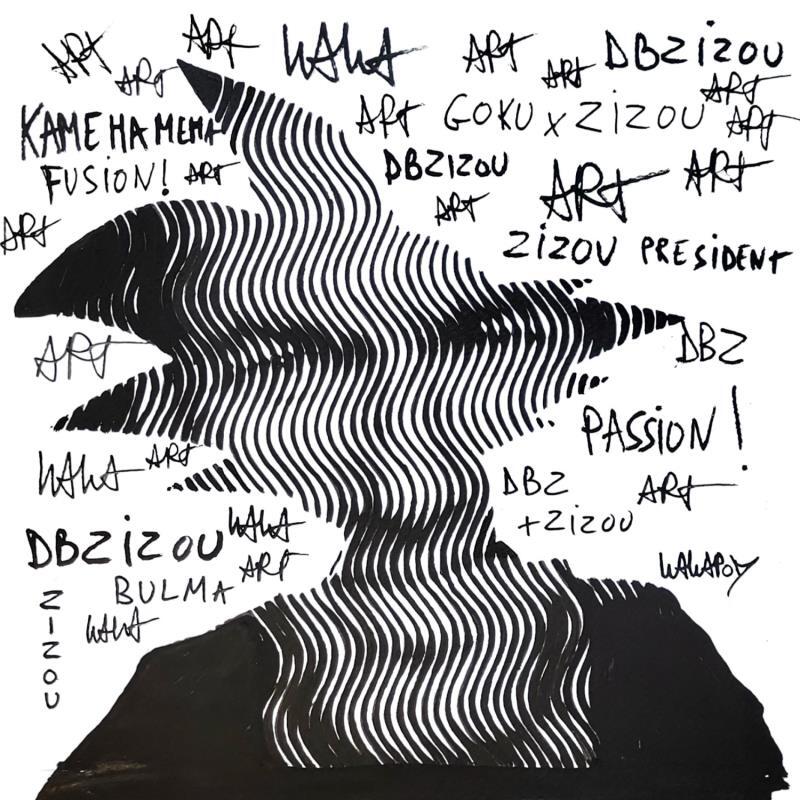 ART
ART
ART
WAWA
ART
ART
DBZIZOU
ART
KAMEHAMEHA
FUSION!
ART
ART
GOKU x ZIZOU
ART
DBZIZOU
ART
ART
ART
ZIZOU PRESIDENT
ART
ART
DBZ
PASSION!
WAWA
ART
DBZ
+ZIZOU
ART
DBZIZOU
WAWA
ART
BULMA
WAWAPOY
ZIZOU
WAWA